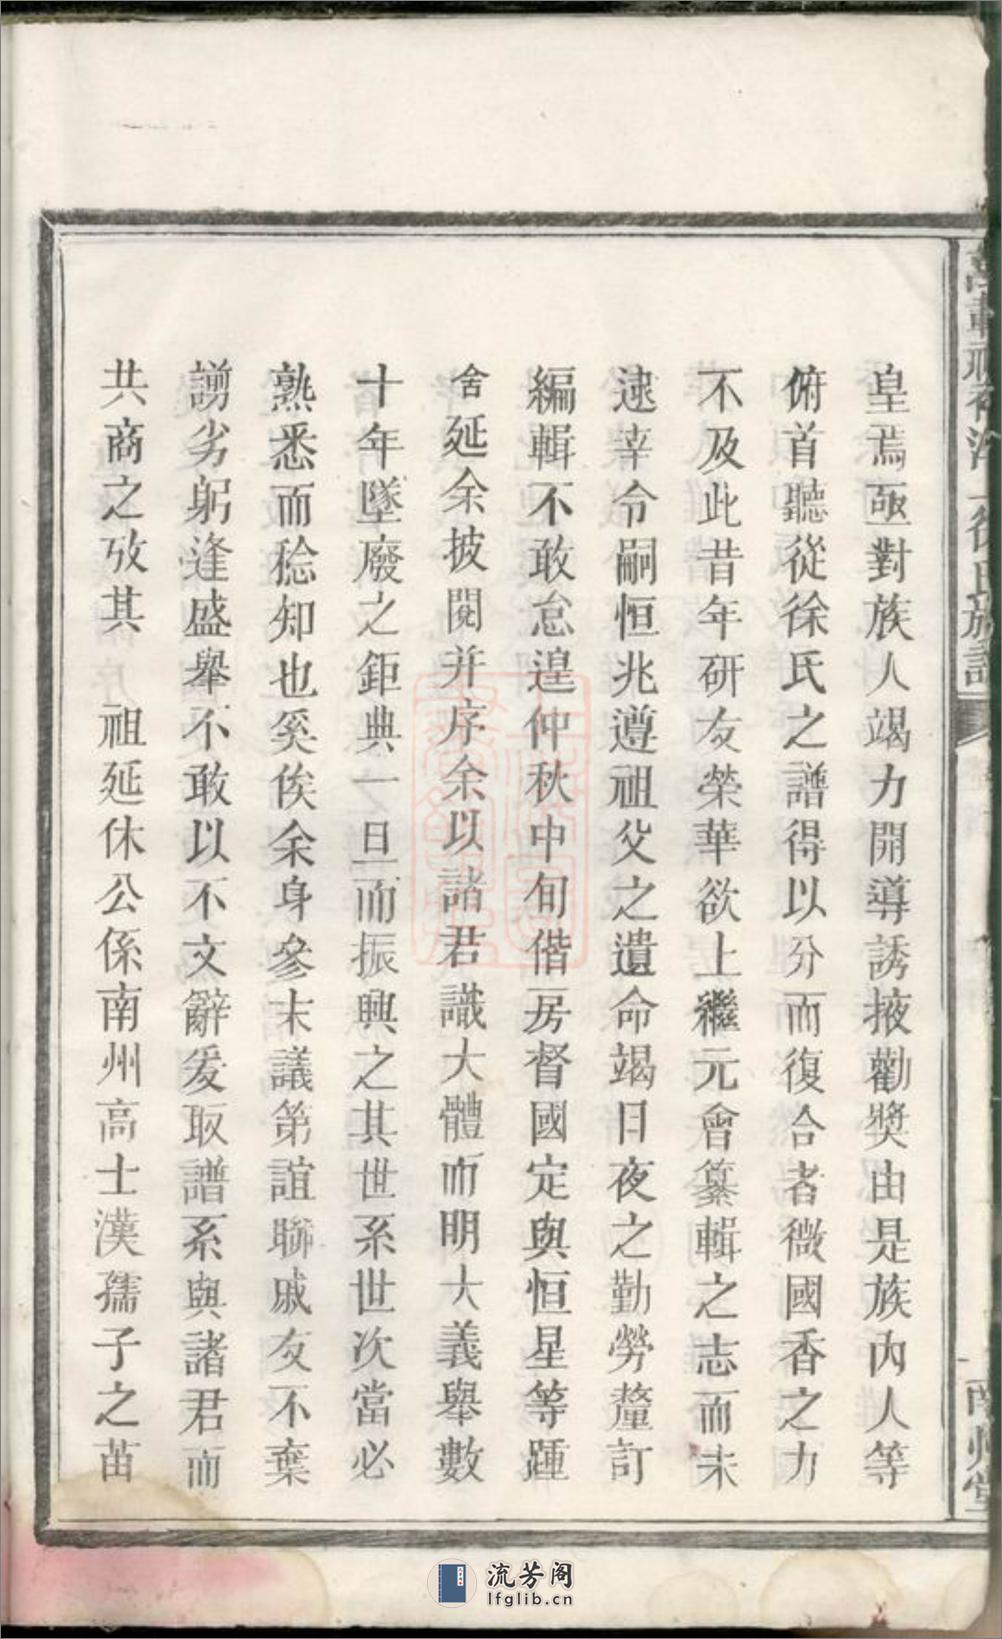 皇焉亟對族人竭力開導誘掖勸奬由是族內人等
俯首聽從徐氏之譜得以分而復合者微國香之力
不及此昔年硏友榮華欲上繼元會纂輯之志而未
逮幸令嗣恒兆遵祖父之遺命竭日夜之勤勞釐訂
編輯不敢怠遑仲秋中旬偕房督國定與恒星等踵
舍延余披閱并序余以諸君識大體而明大義舉數
十年墜廢之鉅典一旦而振興之其世系世次當必
熟悉而稔知也奚俟余身參末議第誼聯戚友不棄
謭劣躬逢盛舉不敢以不文辭爰取譜系與諸君而
共商之攷其　祖延休公係南州高士漢孺子之苗
徐氏族譜
南州堂
流芳阁
lfglib.cn